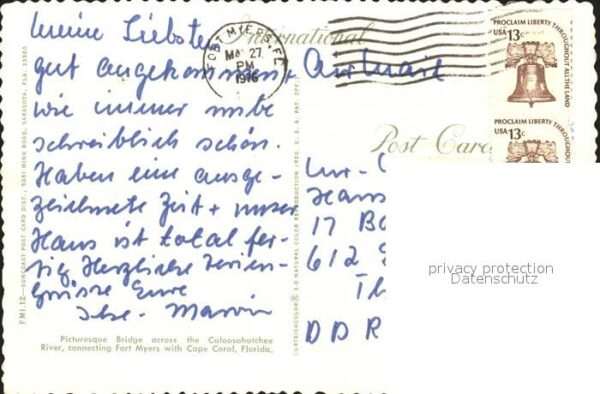 meine Liebsten
gut angekommen +
wie immer unbe
schreiblich schön.
Haben eine ausge-
zeichnete Zeit + unser
Haus ist total fer-
tig Herzliche Ferien-
Grüsse Eure
Ilse. Marvin
Picturesque Bridge across the Caloosahatchee
River, connecting Fort Myers with Cape Coral, Florida.
FM1.12—SUNCOAST POST CARD DIST., 5051 MINK ROAD, SARASOTA, FLA. 33580
CURTEICHCOLOR® 3-D NATURAL COLOR REPRODUCTION (REG. U.S.A. PAT. OFF.)
International
Air Mail
Post Card
FORT MYERS, FL
MA 27
PM
1976
PROCLAIM LIBERTY THROUGHOUT ALL THE LAND
USA 13c
PROCLAIM LIBERTY THROUGHOUT
USA 13c
Hans
17
612
Th
DDR
privacy protection
Datenschutz